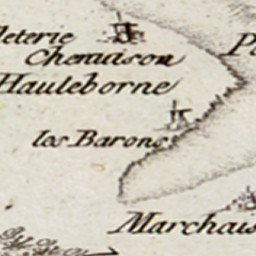 leterie
Chemison
Hauteborne
los Barons
Marchais